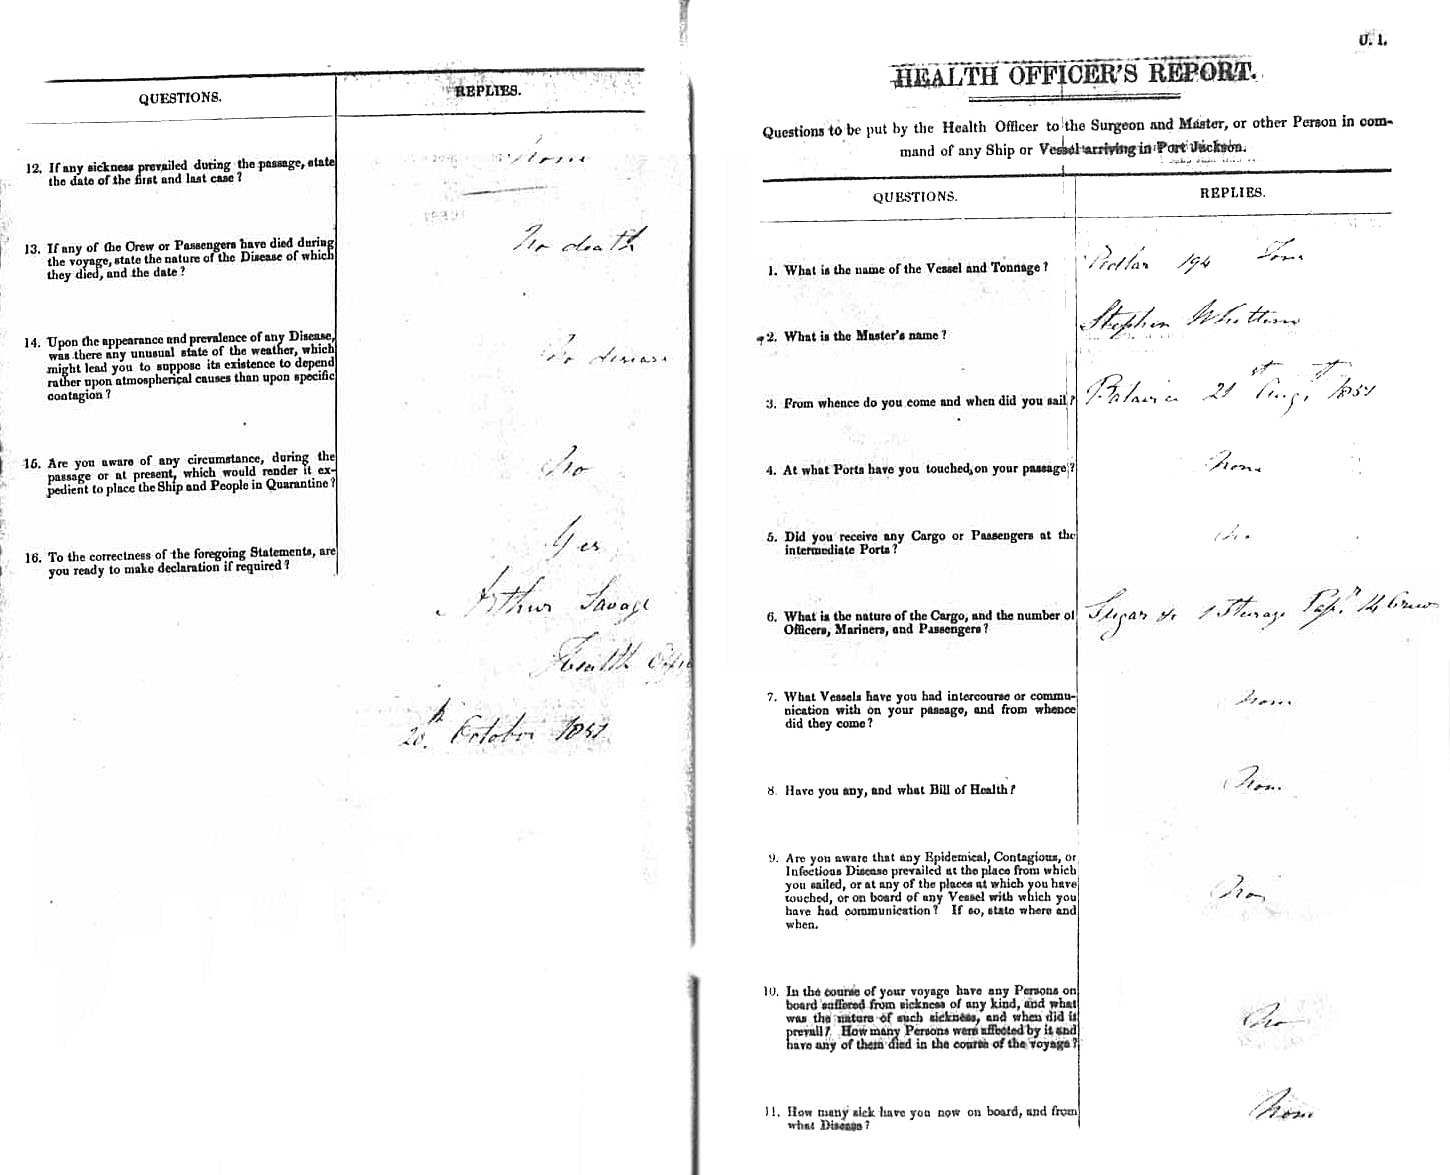 QUESTIONS.
REPLIES.
12. If any sickness prevailed during the passage, state
the date of the first and last case?
None
13. If any of the Crew or Passengers have died during
the voyage, state the nature of the Disease of which
they died, and the date?
No death
14. Upon the appearance and prevalence of any Disease,
was there any unusual state of the weather, which
might lead you to suppose its existence to depend
rather upon atmospherical causes than upon specific
contagion?
No disease
15. Are you aware of any circumstance, during the
passage or at present, which would render it ex-
pedient to place the Ship and People in Quarantine?
No
16. To the correctness of the foregoing Statements, are
you ready to make declaration if required?
Yes
Arthur Savage
Health
20th October 1851
U. 1.
HEALTH OFFICER'S REPORT.
Questions to be put by the Health Officer to the Surgeon and Master, or other Person in com-
mand of any Ship or Vessel arriving in Port Jackson.
QUESTIONS.
REPLIES.
1. What is the name of the Vessel and Tonnage?
Pedlar 194 Tons
2. What is the Master's name?
Stephen
3. From whence do you come and when did you sail?
Batavia 21st Augt 1851
4. At what Ports have you touched, on your passage?
None
5. Did you receive any Cargo or Passengers at the
intermediate Ports?
No
6. What is the nature of the Cargo, and the number of
Officers, Mariners, and Passengers?
Sugar &c 1 Sterage Pasr 14 Crew
7. What Vessels have you had intercourse or commu-
nication with on your passage, and from whence
did they come?
None
8. Have you any, and what Bill of Health?
None
9. Are you aware that any Epidemical, Contagious, or
Infectious Disease prevailed at the place from which
you sailed, or at any of the places at which you have
touched, or on board of any Vessel with which you
have had communication? If so, state where and
when.
No
10. In the course of your voyage have any Persons on
board suffered from sickness of any kind, and what
was the nature of such sickness, and when did it
prevail? How many Persons were affected by it and
have any of them died in the course of the voyage?
No
11. How many sick have you now on board, and from
what Disease?
None